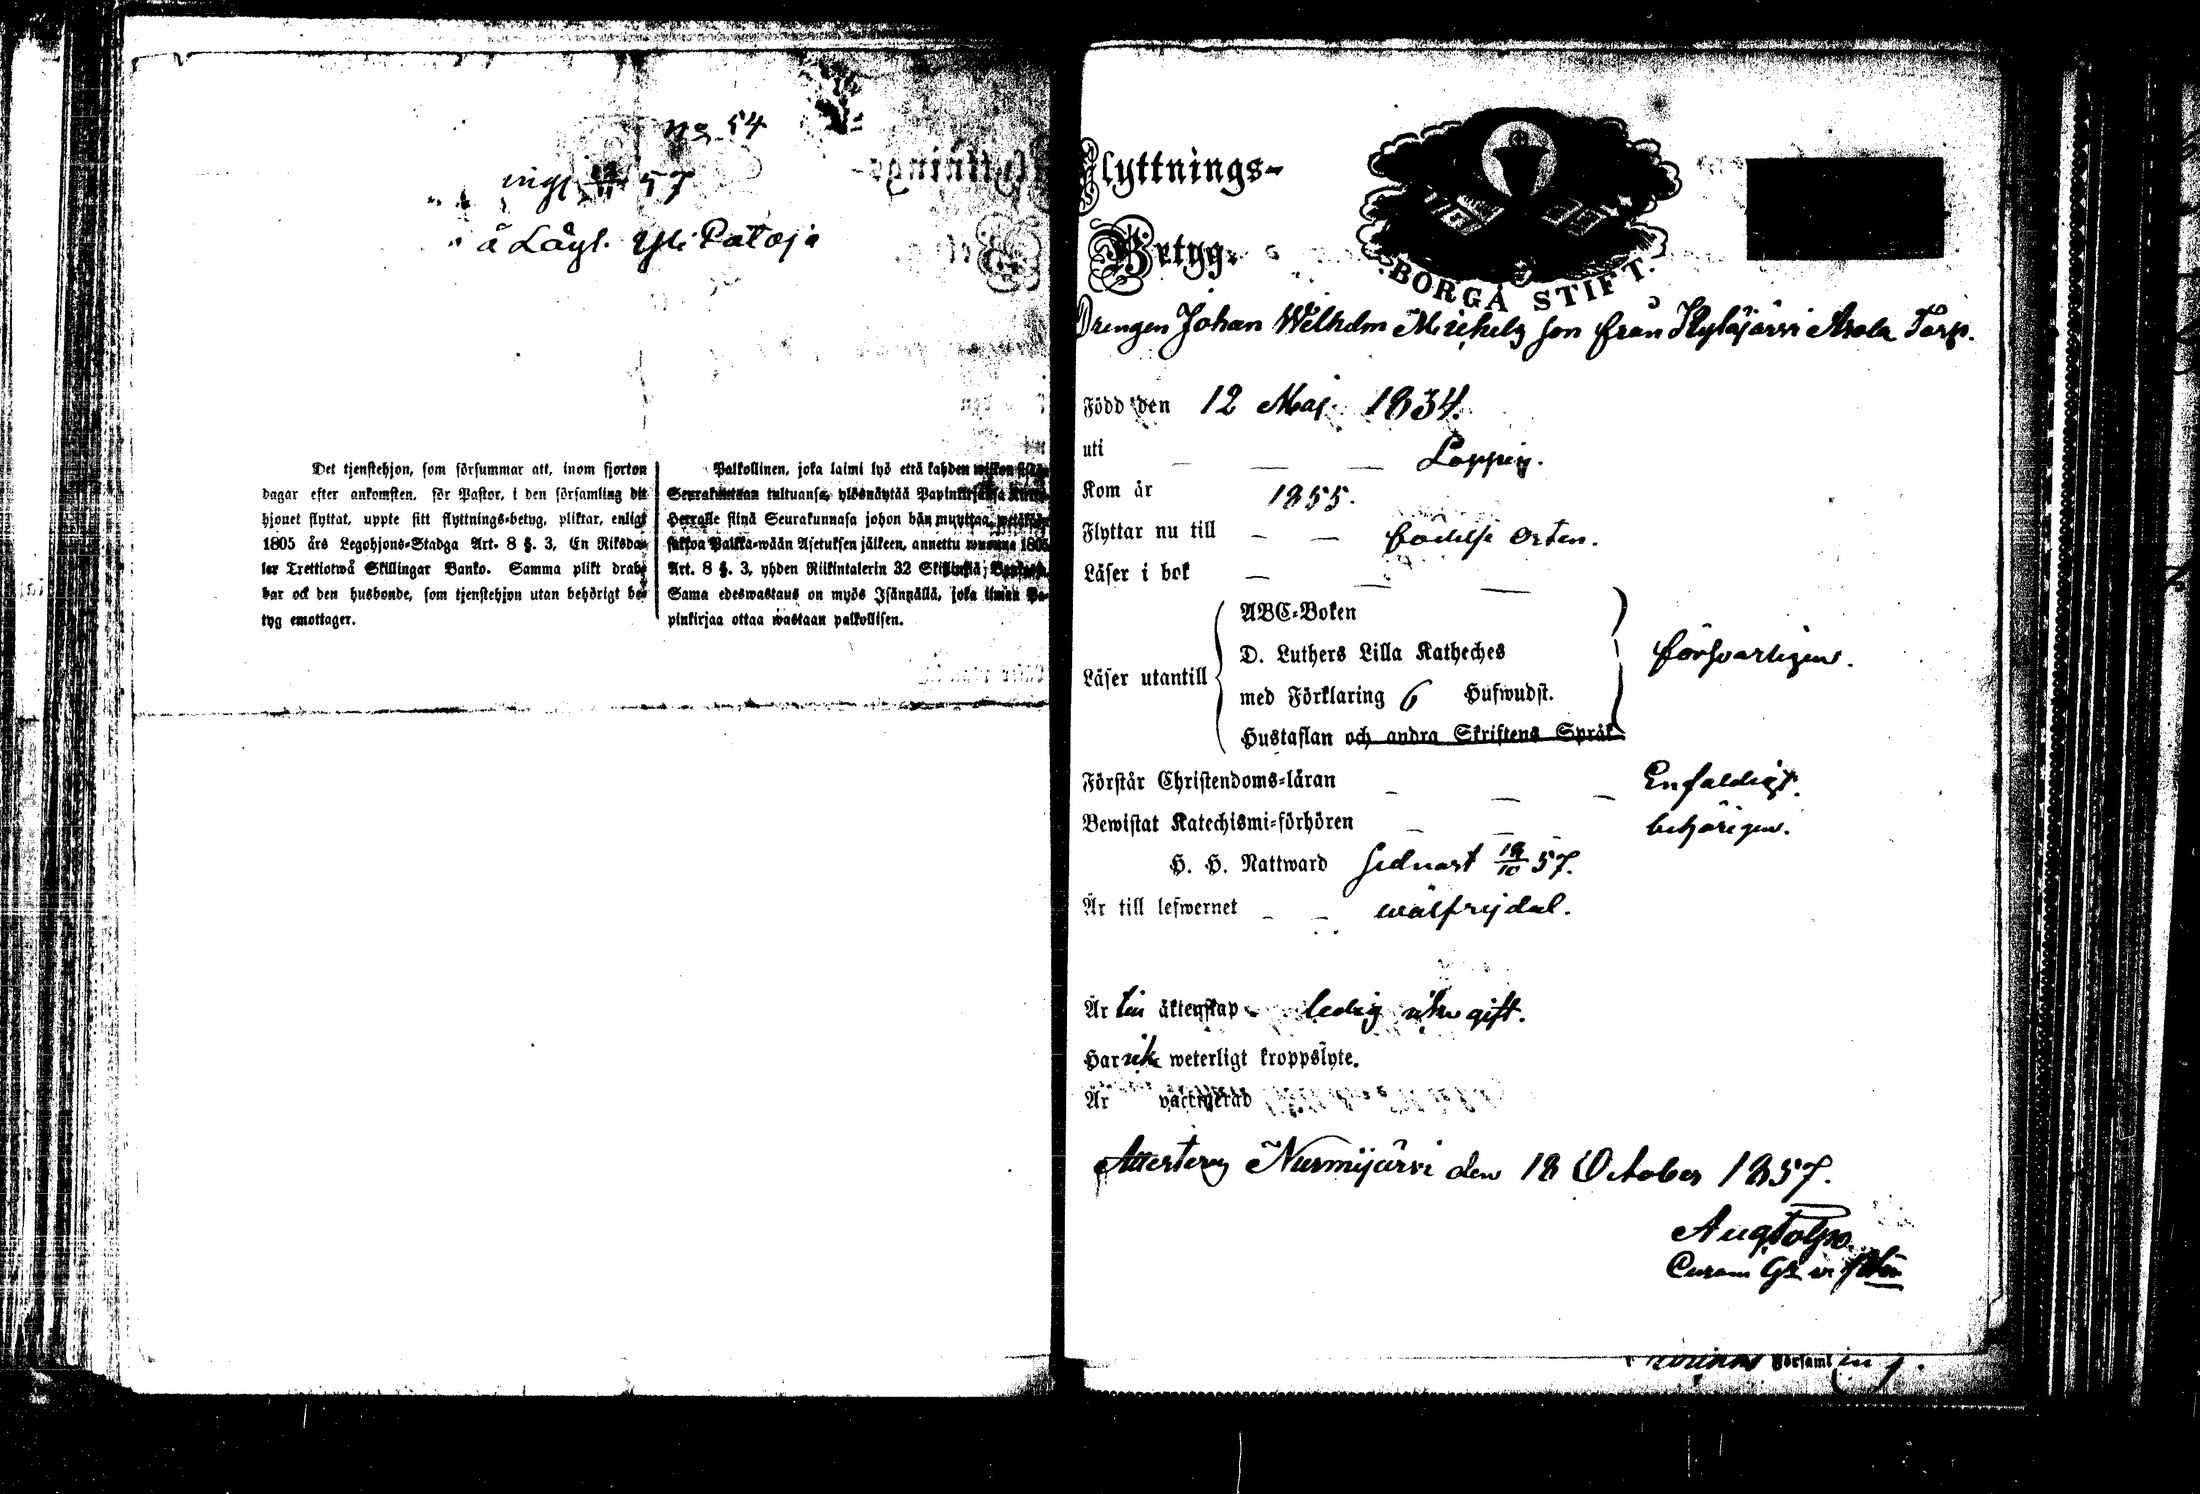 No 54
57
å Läyl. Yli Pätöjä
Det tjenstehjon, som försummar att, inom fjorton
dagar efter ankomsten, för Pastor, i den församling dit
hjonet flyttat, uppte sitt flyttnings-betyg, pliktar, enligt
1805 års Legohjons-Stadga Art. 8 §. 3, En Riksda-
ler Trettiotwå Skillingar Banko. Samma plikt drab-
bar ock den husbonde, som tjenstehjon utan behörigt be-
tyg emottager.
Palkollinen, joka laimi lyö että kahden wiikon
Seurakuntaan tultuansa, ylösnäytää Papinkirjansa
Herralle siinä Seurakunnasa johon hän muuttaa,
sakkoa Palkka-wään Asetuksen jälkeen, annettu wuonna 1805
Art. 8 §. 3, yhden Riikintalerin 32 Skillinkiä
Sama edeswastaus on myös Isännällä, joka ilman Pa-
pinkirjaa ottaa wastaan palkollisen.
Flyttnings-
Betyg.
BORGÅ STIFT.
Drengen Johan Wilhelm Michels son från Kyläjärvi Arola Torp.
Född den 12 Maj 1834.
uti Loppis.
Kom år 1855.
Flyttar nu till födelse orten.
Läser i bok
Läser utantill
ABC-Boken
D. Luthers Lilla Katheches
med Förklaring 6 Hufwudst.
Hustaflan och andra Skriftens Språk
försvarligen.
Förstår Christendoms-läran Enfaldigt.
Bewistat Katechismi-förhören behörigen.
H. H. Nattward sednast 18/10 57.
Är till lefwernet wälfrejdad.
Är till äktenskap ledig icke gift.
Har icke weterligt kroppslyte.
Är vaccinerad
Attesteras Nurmijärvi den 18 October 1857.
Församl